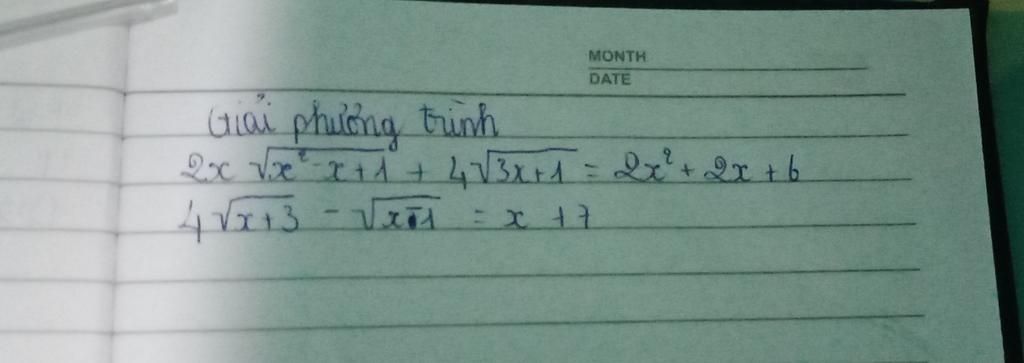 MONTH
DATE
Giải phương trình
2x √(x² - x + 1) + 4√(3x+1) = 2x² + 2x + 6
4√(x+3) - √(x-1) = x + 7